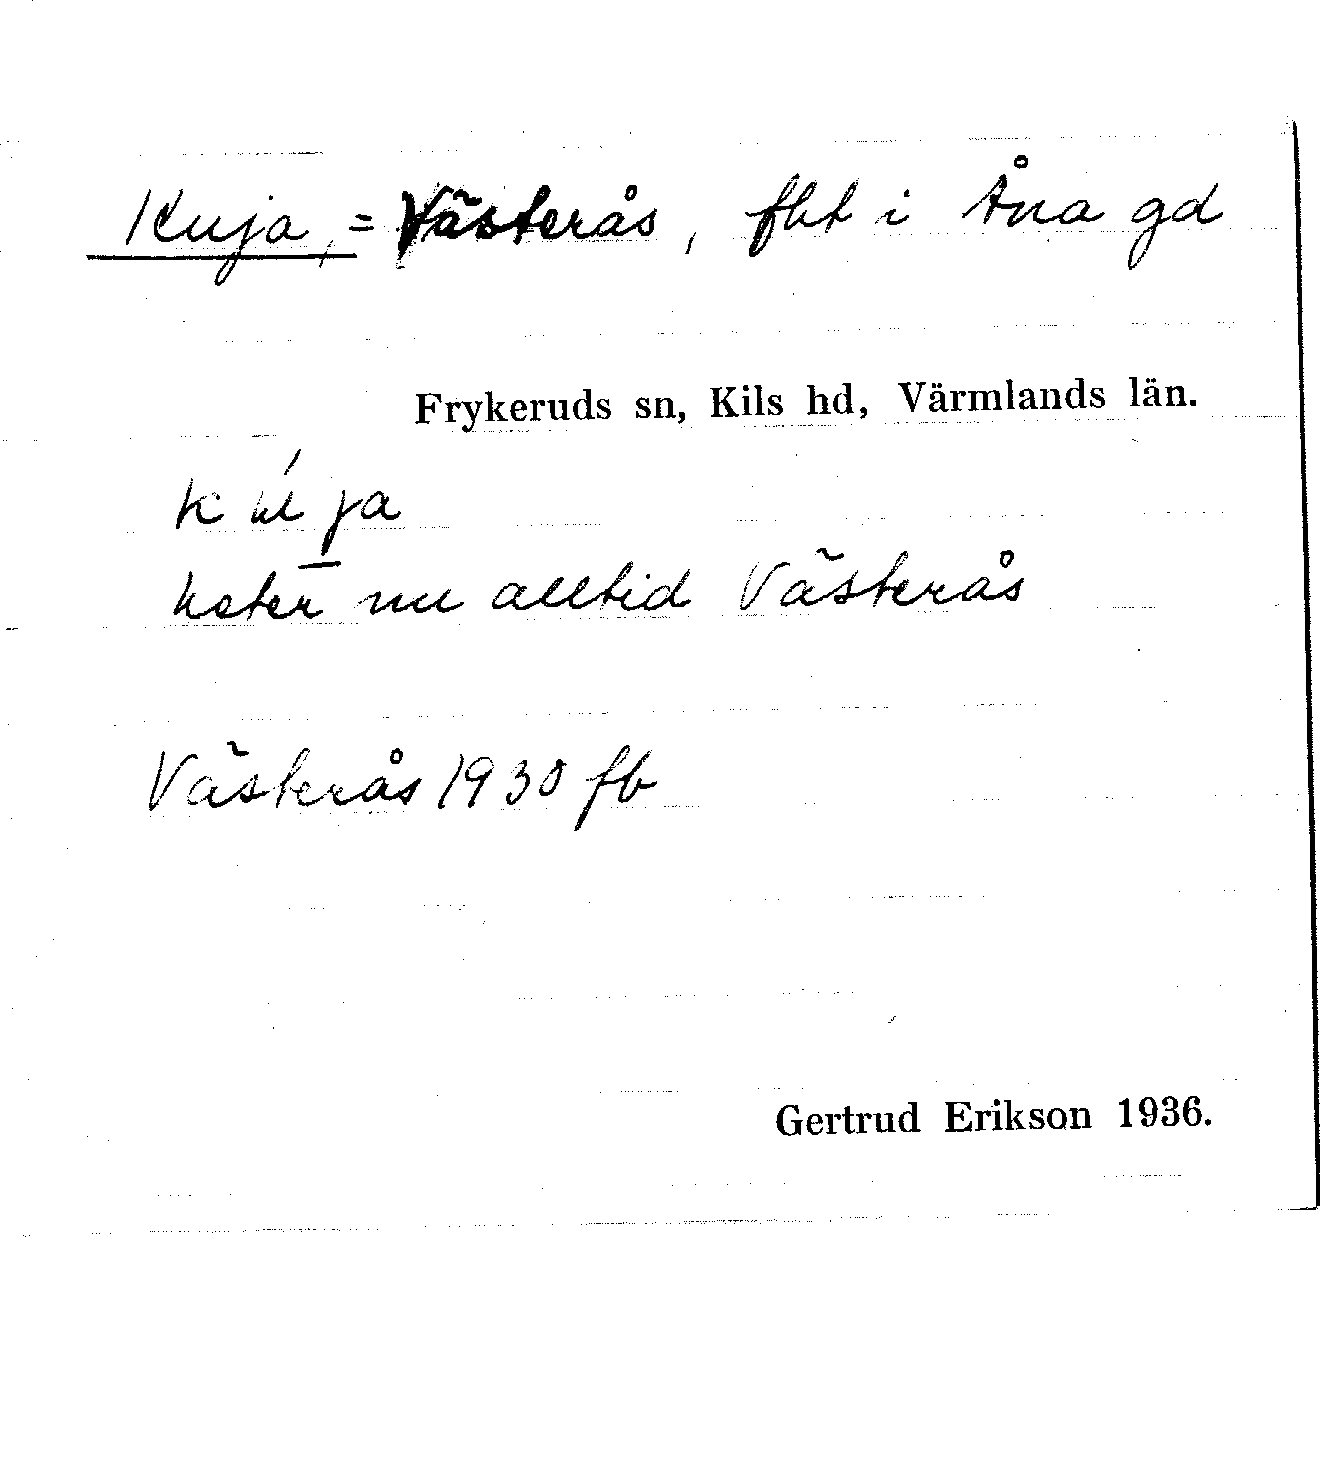 Kuja, = Västerås, fht i Åna gd
Frykeruds sn, Kils hd, Värmlands län.
kú ja
heter nu alltid Västerås
Västerås 1930 fb
Gertrud Erikson 1936.